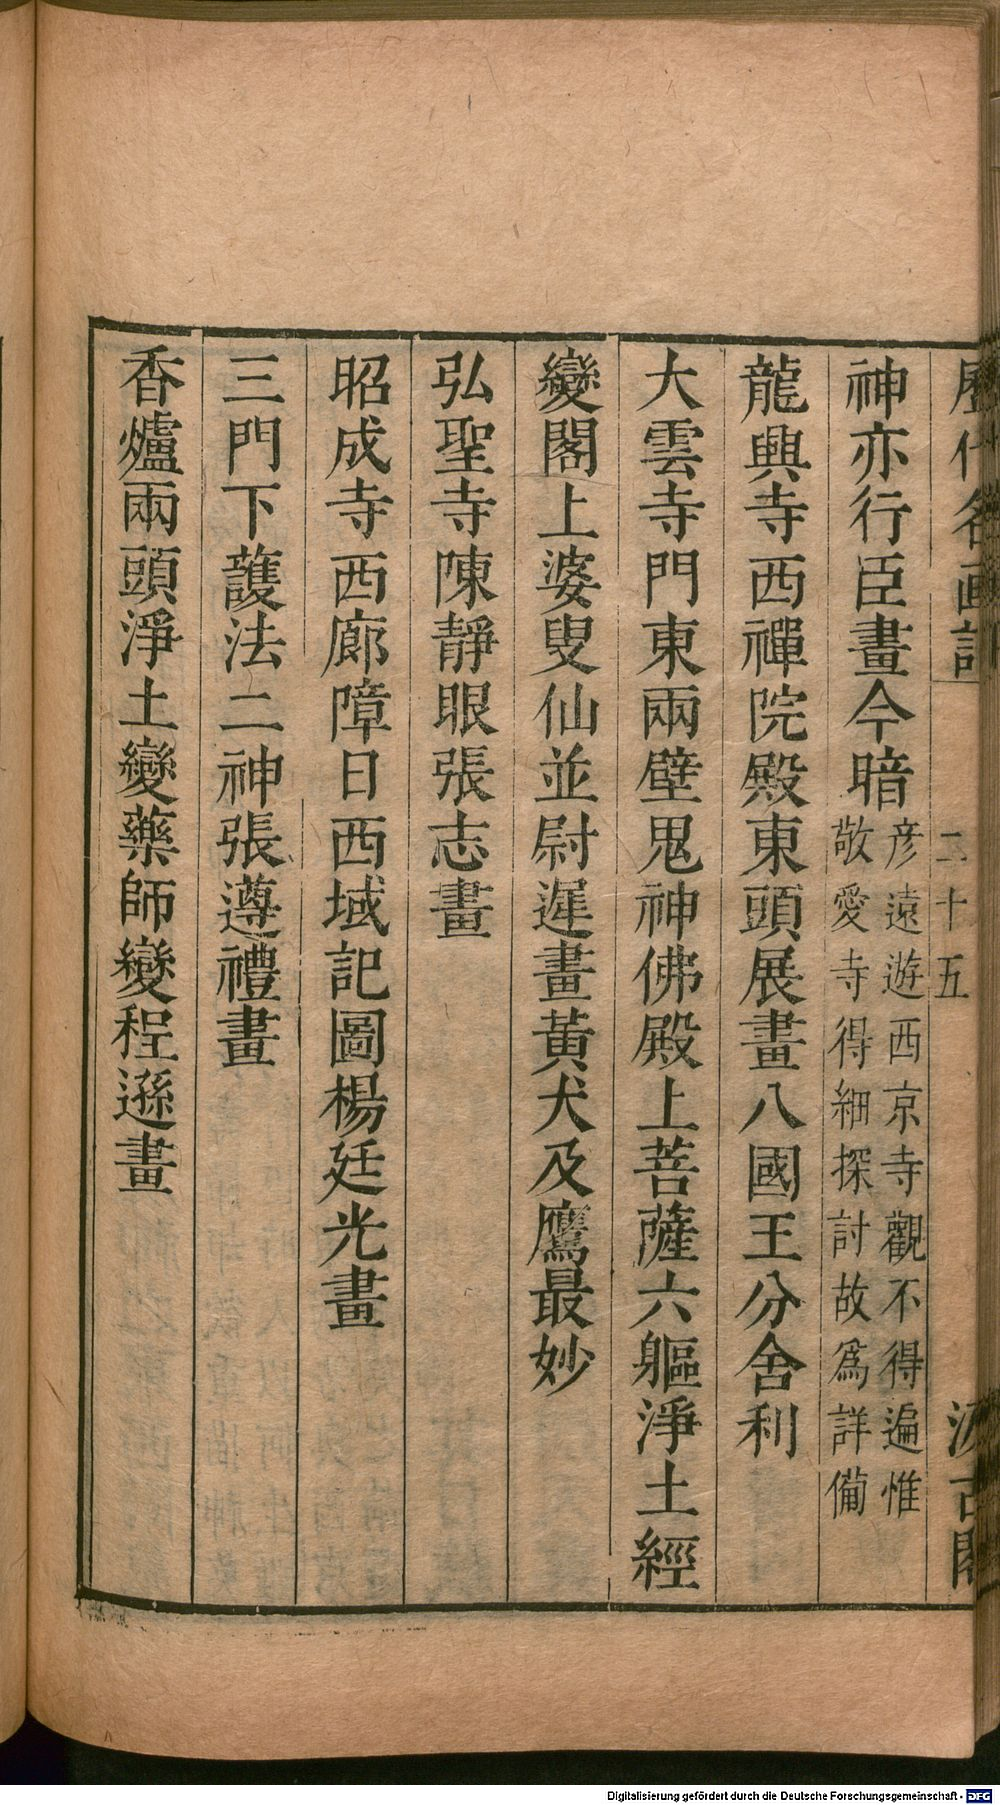 歷代名画記 二十五 汲古閣
神亦行臣畫今暗彦遠遊西京寺觀不得遍惟
敬愛寺得細探討故爲詳備
龍興寺西禪院殿東頭展畫八國王分舍利
大雲寺門東兩壁鬼神佛殿上菩薩六軀淨土經
變閣上婆叟仙並尉遲畫黃犬及鷹最妙
弘聖寺陳靜眼張志畫
昭成寺西廊障日西域記圖楊廷光畫
三門下護法二神張遵禮畫
香爐兩頭淨土變藥師變程遜畫
Digitalisierung gefördert durch die Deutsche Forschungsgemeinschaft - DFG